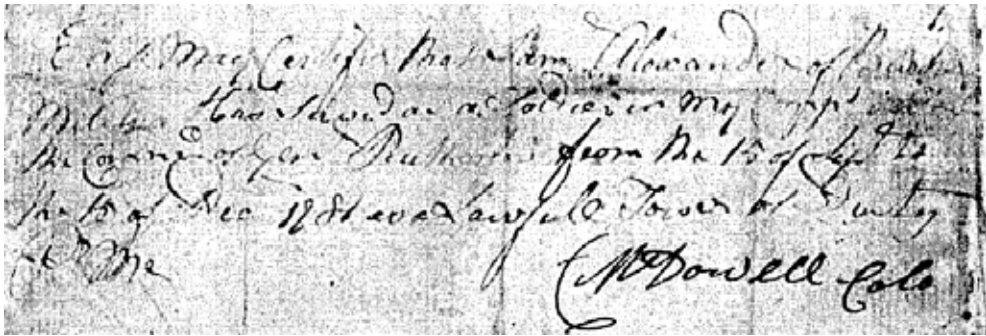 This May Certifie that Sam Alexander of
Militia Has Served as a Soldier in My
the Comm'd of Gen Rutherford from the 15 of Sept to
the 15 of Dec 1781 a Lawfull Tower of Duty
Me
C McDowell Colo